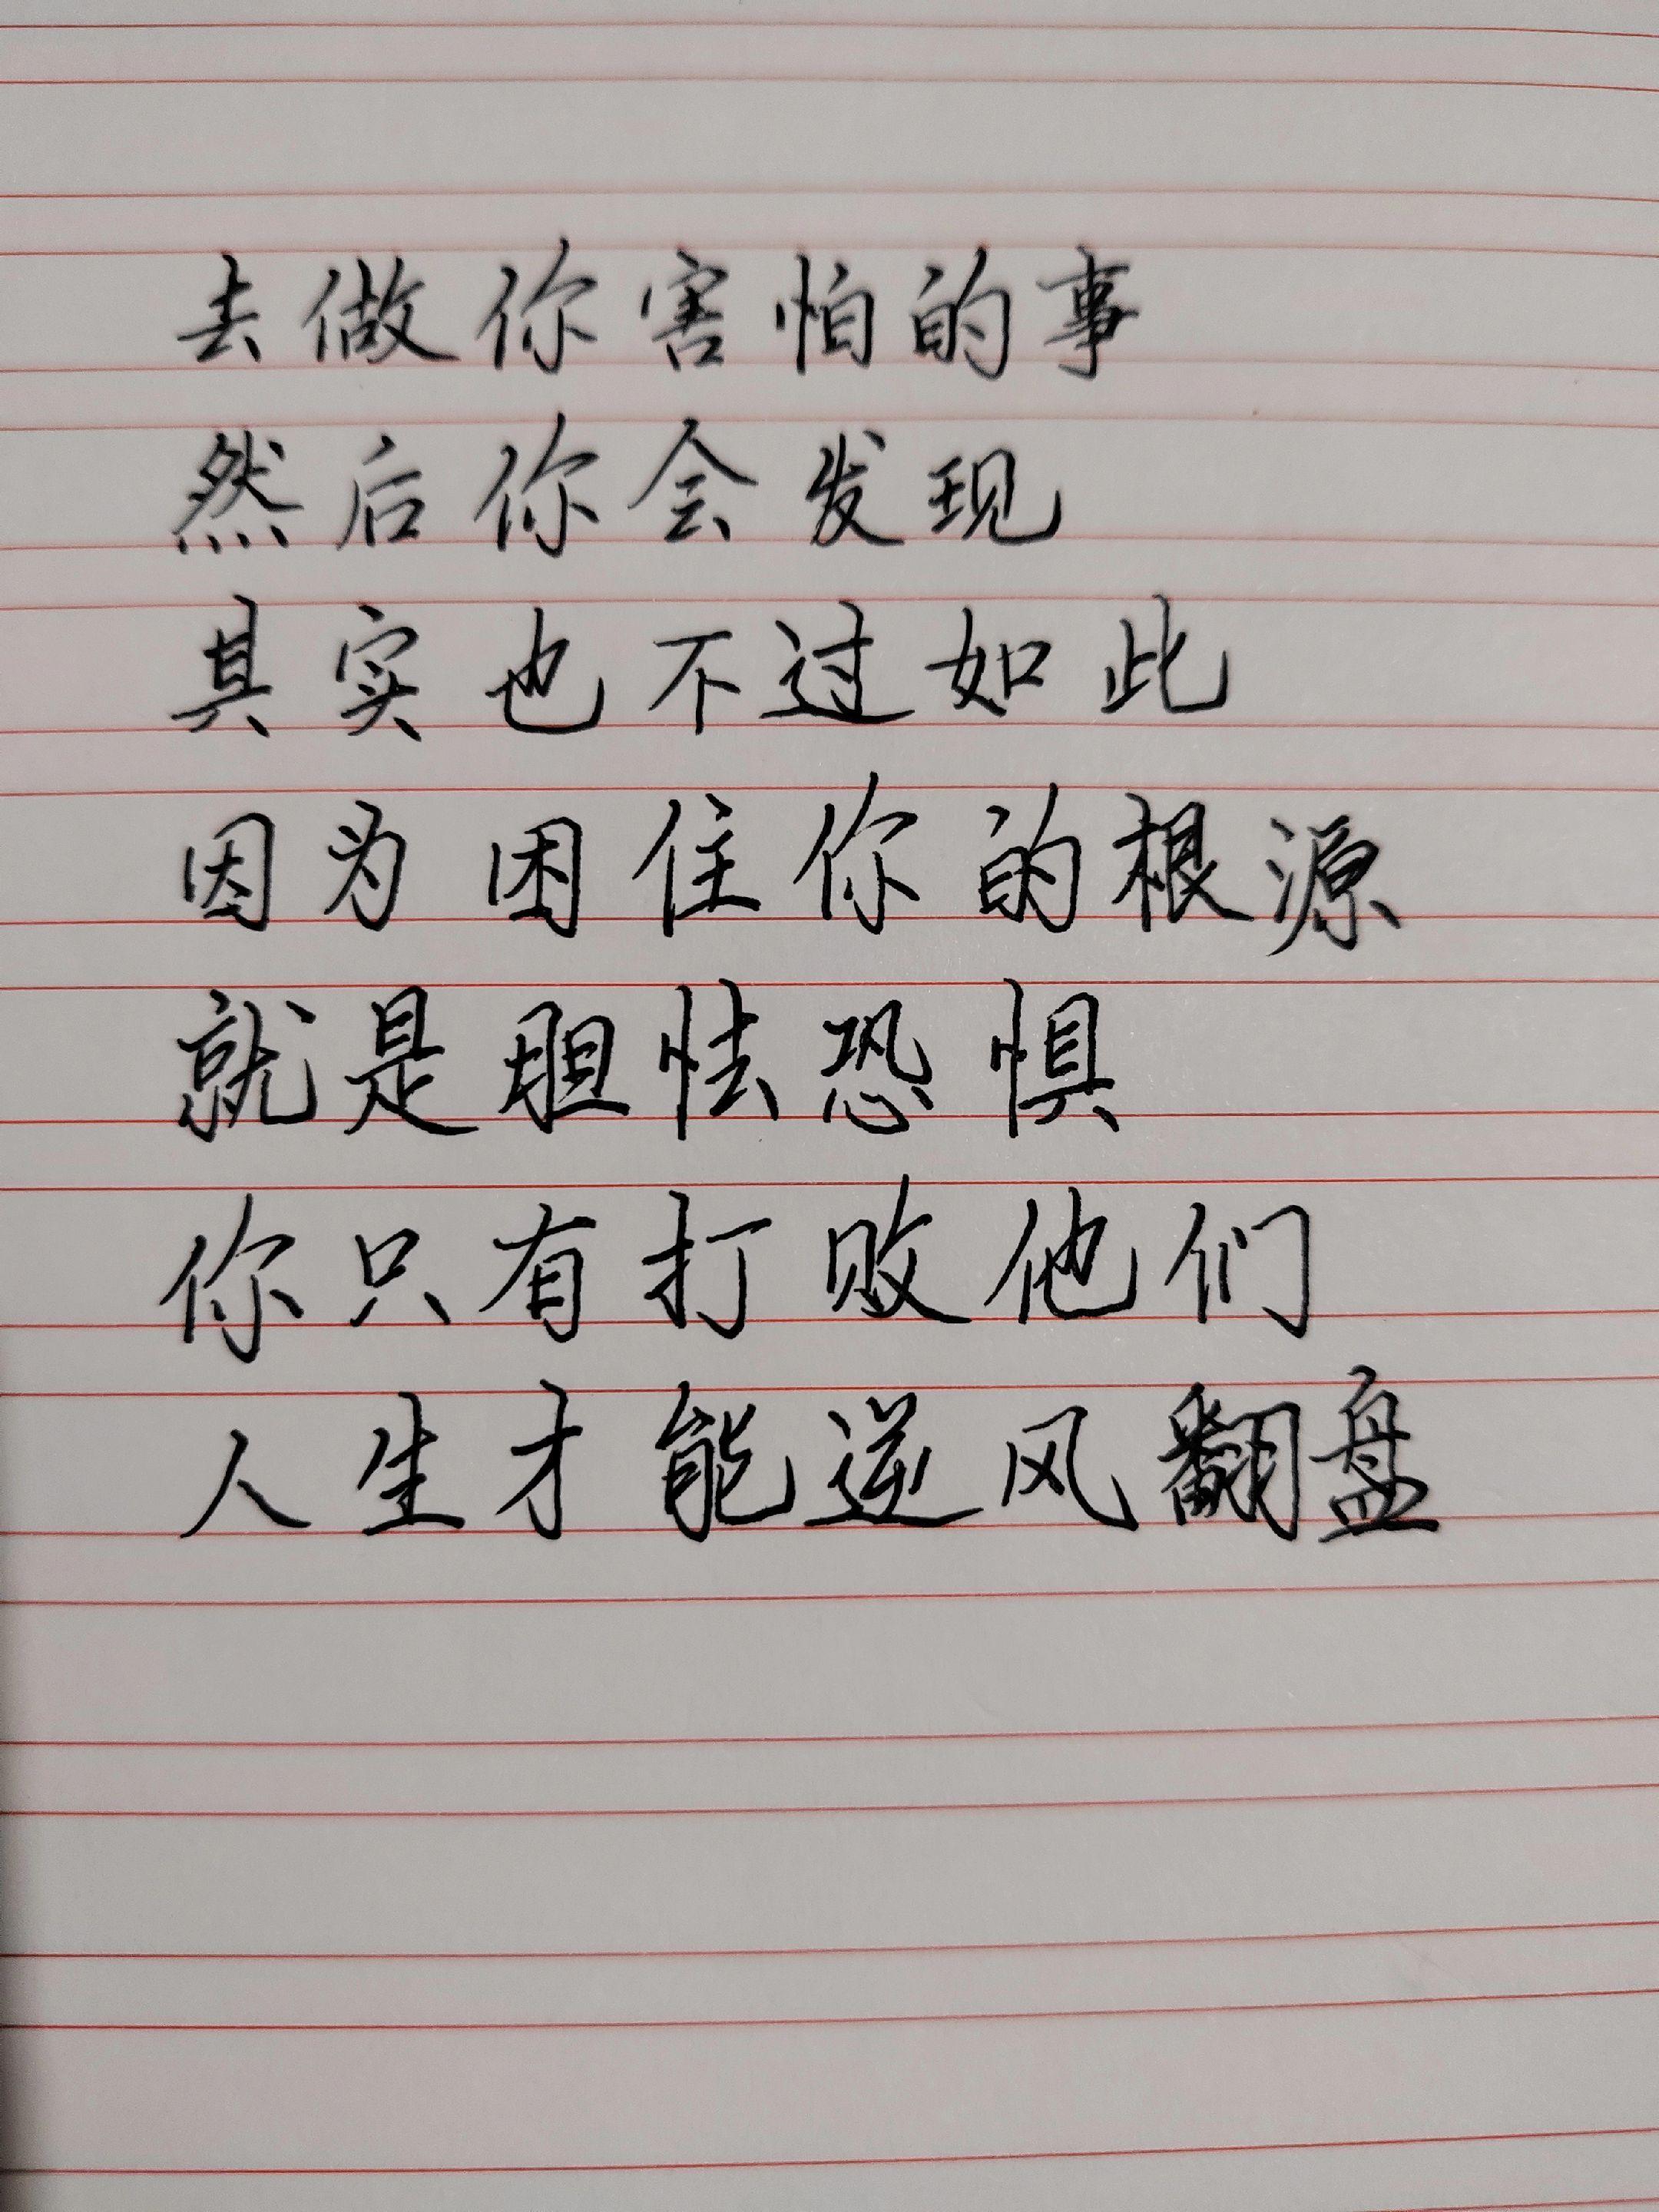 去做你害怕的事
然后你会发现
其实也不过如此
因为困住你的根源
就是胆怯恐惧
你只有打败他们
人生才能逆风翻盘